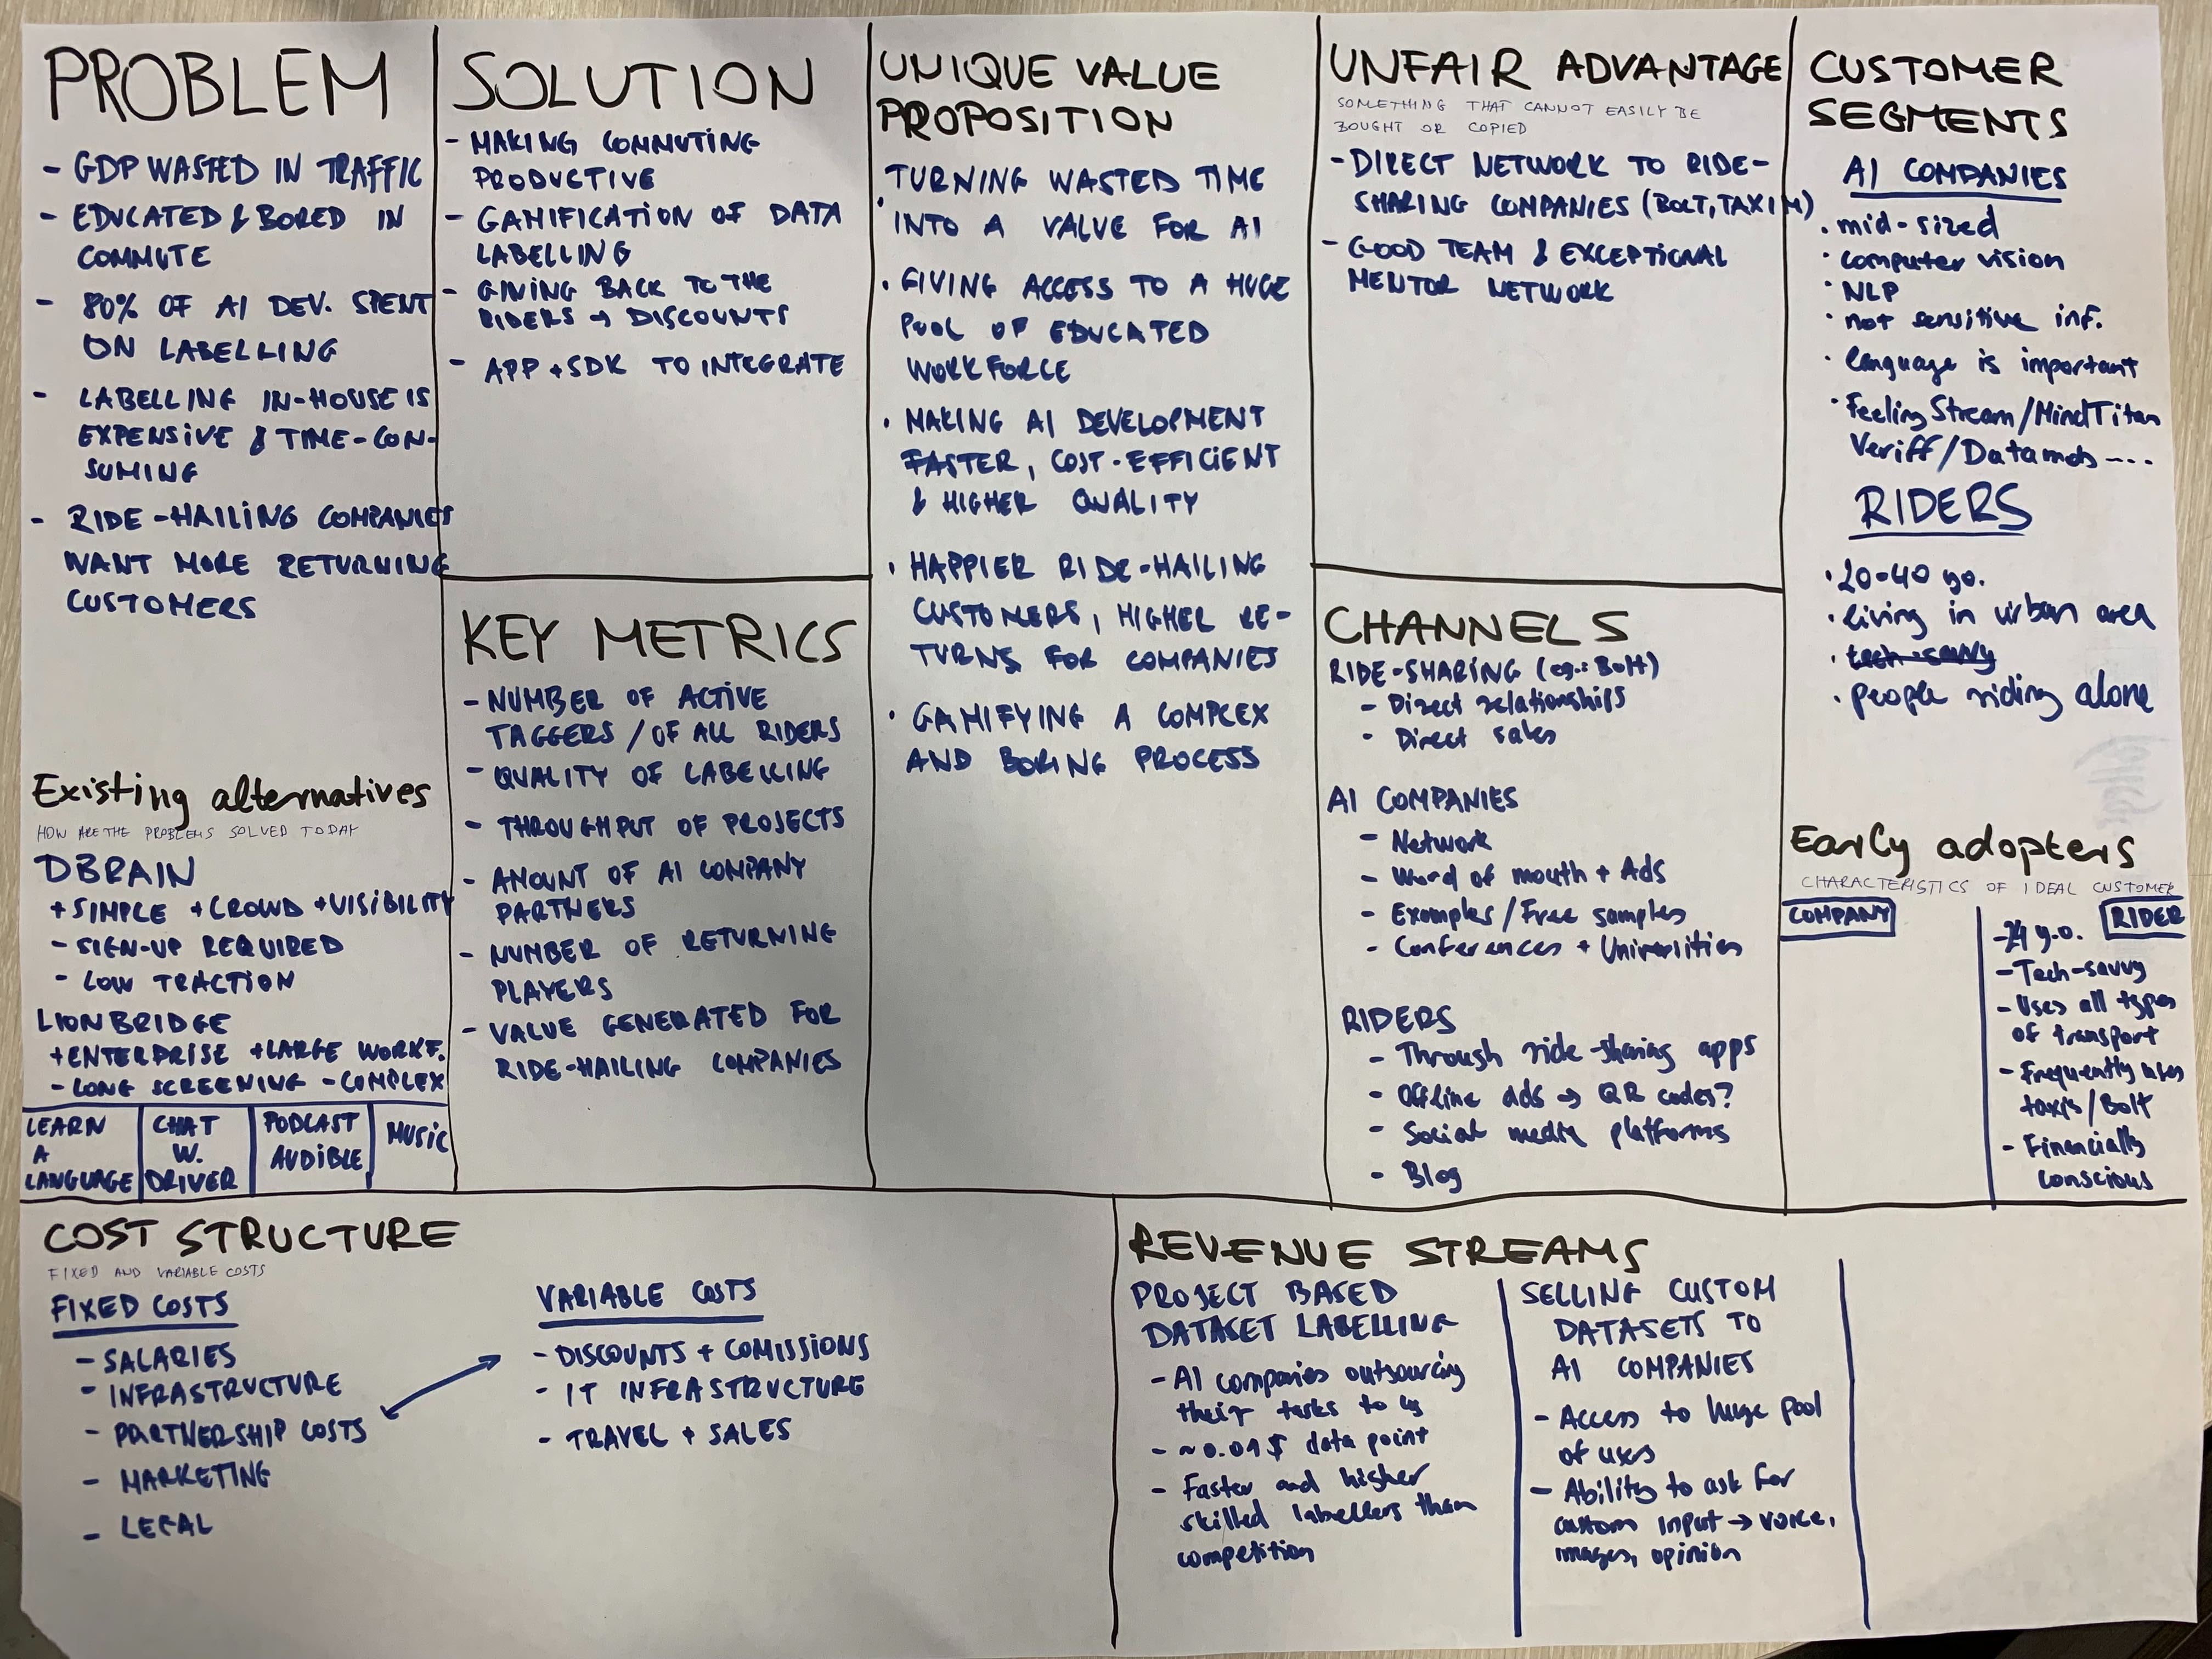 PROBLEM
- GDP WASTED IN TRAFFIC
- EDUCATED & BORED IN
COMMUTE
- 80% OF AI DEV. SPENT
ON LABELLING
- LABELLING IN-HOUSE IS
EXPENSIVE & TIME-CON-
SUMING
- RIDE-HAILING COMPANIES
WANT MORE RETURNING
CUSTOMERS
Existing alternatives
HOW ARE THE PROBLEMS SOLVED TODAY
DBRAIN
+SIMPLE +CROWD +VISIBILITY
- SIGN-UP REQUIRED
- LOW TRACTION
LIONBRIDGE
+ENTERPRISE +LARGE WORKF.
- LONG SCREENING - COMPLEX
LEARN
A
LANGUAGE
CHAT
W.
DRIVER
PODCAST
AUDIBLE
MUSIC
SOLUTION
- MAKING COMMUTING
PRODUCTIVE
- GAMIFICATION OF DATA
LABELLING
- GIVING BACK TO THE
RIDERS → DISCOUNTS
- APP + SDK TO INTEGRATE
KEY METRICS
- NUMBER OF ACTIVE
TAGGERS / OF ALL RIDERS
- QUALITY OF LABELLING
- THROUGHPUT OF PROJECTS
- AMOUNT OF AI COMPANY
PARTNERS
- NUMBER OF RETURNING
PLAYERS
- VALUE GENERATED FOR
RIDE-HAILING COMPANIES
UNIQUE VALUE
PROPOSITION
TURNING WASTED TIME
· INTO A VALUE FOR AI
· GIVING ACCESS TO A HUGE
POOL OF EDUCATED
WORKFORCE
· MAKING AI DEVELOPMENT
FASTER, COST-EFFICIENT
& HIGHER QUALITY
· HAPPIER RIDE-HAILING
CUSTOMERS, HIGHER RE-
TURNS FOR COMPANIES
· GAMIFYING A COMPLEX
AND BORING PROCESS
UNFAIR ADVANTAGE
SOMETHING THAT CANNOT EASILY BE
BOUGHT OR COPIED
- DIRECT NETWORK TO RIDE-
SHARING COMPANIES (BOLT, TAXIM)
- GOOD TEAM & EXCEPTIONAL
MENTOR NETWORK
CHANNELS
RIDE-SHARING (eg.: Bolt)
- Direct relationships
- Direct sales
AI COMPANIES
- Network
- Word of mouth + Ads
- Examples/Free samples
- Conferences + Universities
RIDERS
- Through ride-sharing apps
- Offline ads → QR codes?
- Social media platforms
- Blog
CUSTOMER
SEGMENTS
AI COMPANIES
· mid-sized
· computer vision
· NLP
· not sensitive inf.
· language is important
· FeelingStream/MindTitan
Veriff/Datamob ----
RIDERS
· 20-40 yo.
· living in urban area
· tech-savvy
· people riding alone
Early adopters
CHARACTERISTICS OF IDEAL CUSTOMER
COMPANY
RIDER
y.o.
- Tech-savvy
- Uses all types
of transport
- Frequently uses
taxis/Bolt
- Financially
conscious
COST STRUCTURE
FIXED AND VARIABLE COSTS
FIXED COSTS
- SALARIES
- INFRASTRUCTURE
- PARTNERSHIP COSTS
- MARKETING
- LEGAL
VARIABLE COSTS
- DISCOUNTS + COMISSIONS
- IT INFRASTRUCTURE
- TRAVEL + SALES
REVENUE STREAMS
PROJECT BASED
DATASET LABELLING
- AI companies outsourcing
their tasks to us
- ~0.01$ data point
- Faster and higher
skilled labellers than
competition
SELLING CUSTOM
DATASETS TO
AI COMPANIES
- Access to huge pool
of users
- Ability to ask for
custom input → voice,
images, opinion